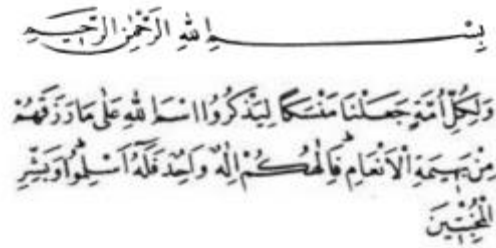 بِسْمِ اللهِ الرَّحْمٰنِ الرَّحِيْمِ
وَلِكُلِّ اُمَّةٍ جَعَلْنَا مَنْسَكًا لِيَذْكُرُوا اسْمَ اللهِ عَلٰى مَا رَزَقَهُمْ
مِنْ بَهِيْمَةِ الْاَنْعَامِ ۗ فَاِلٰهُكُمْ اِلٰهٌ وَاحِدٌ فَلَهٗ اَسْلِمُوْا وَبَشِّرِ
الْمُخْبِتِيْنَ